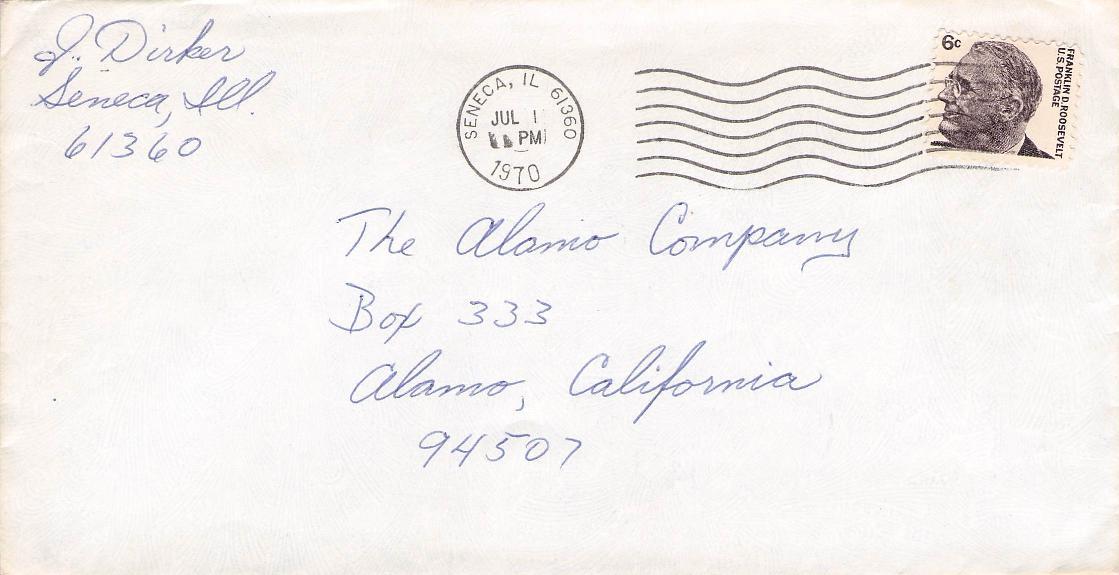 J. Dirker
Seneca, Ill.
61360
SENECA, IL 61360
JUL 1
PM
1970
6c
FRANKLIN D. ROOSEVELT
U.S. POSTAGE
The Alamo Company
Box 333
Alamo, California
94507